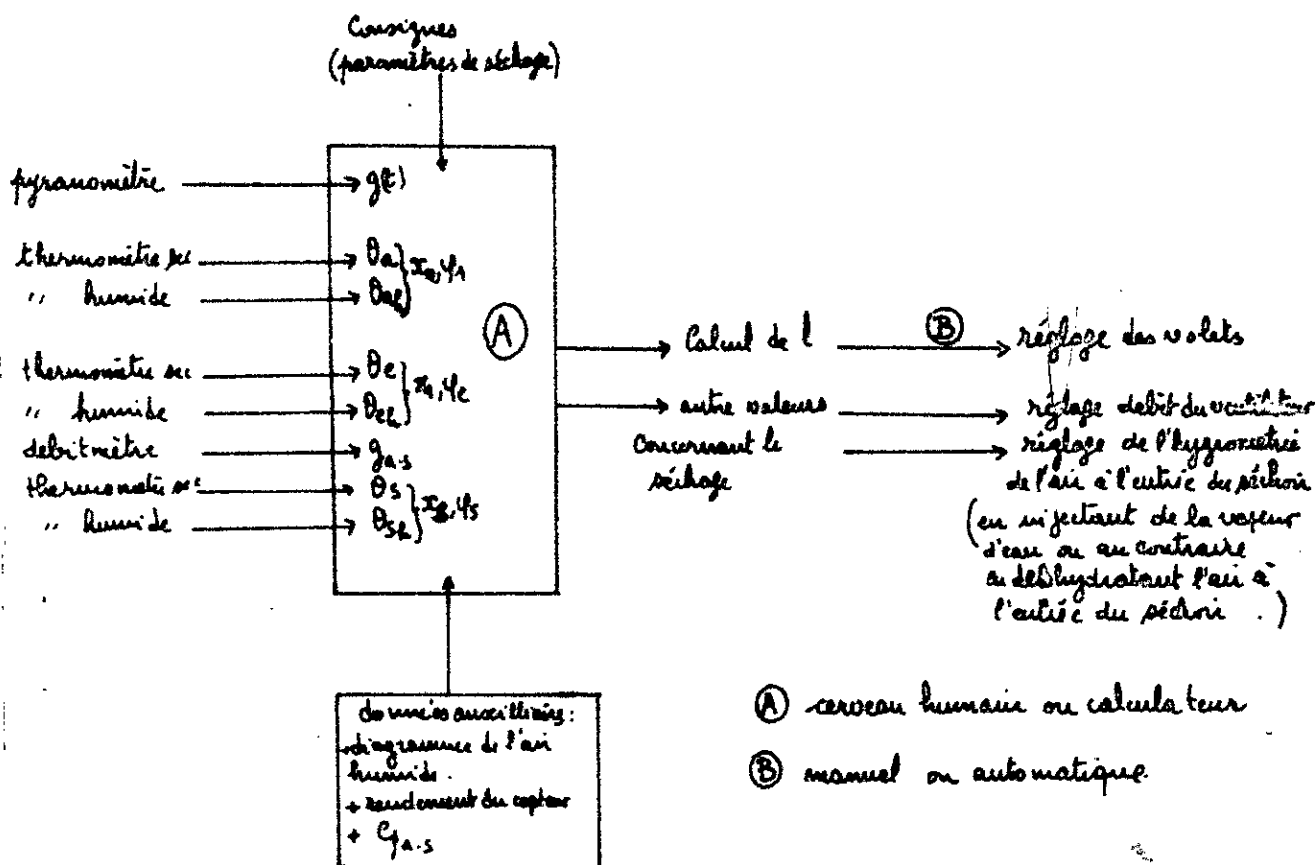 Consignes
(paramètres de séchage)
pyranomètre g(t)
thermomètre sec θa
„ humide θah } xa, φ1
thermomètre sec θe
„ humide θeh } x1, φe
debitmètre ga.s
thermomètre sec θs
„ humide θsh } φs
A
Calcul de l
B
réglage des volets
autre valeurs
concernant le
séchage
réglage debit du ventilateur
réglage de l'hygrométrie
de l'air à l'entrée du séchoir
(en injectant de la vapeur
d'eau ou au contraire
en deshydratant l'air à
l'entrée du séchoir .)
données auxilliaire :
+ diagramme de l'air
humide.
+ rendement du capteur
+ Cpa.s
A cerveau humain ou calculateur
B manuel ou automatique